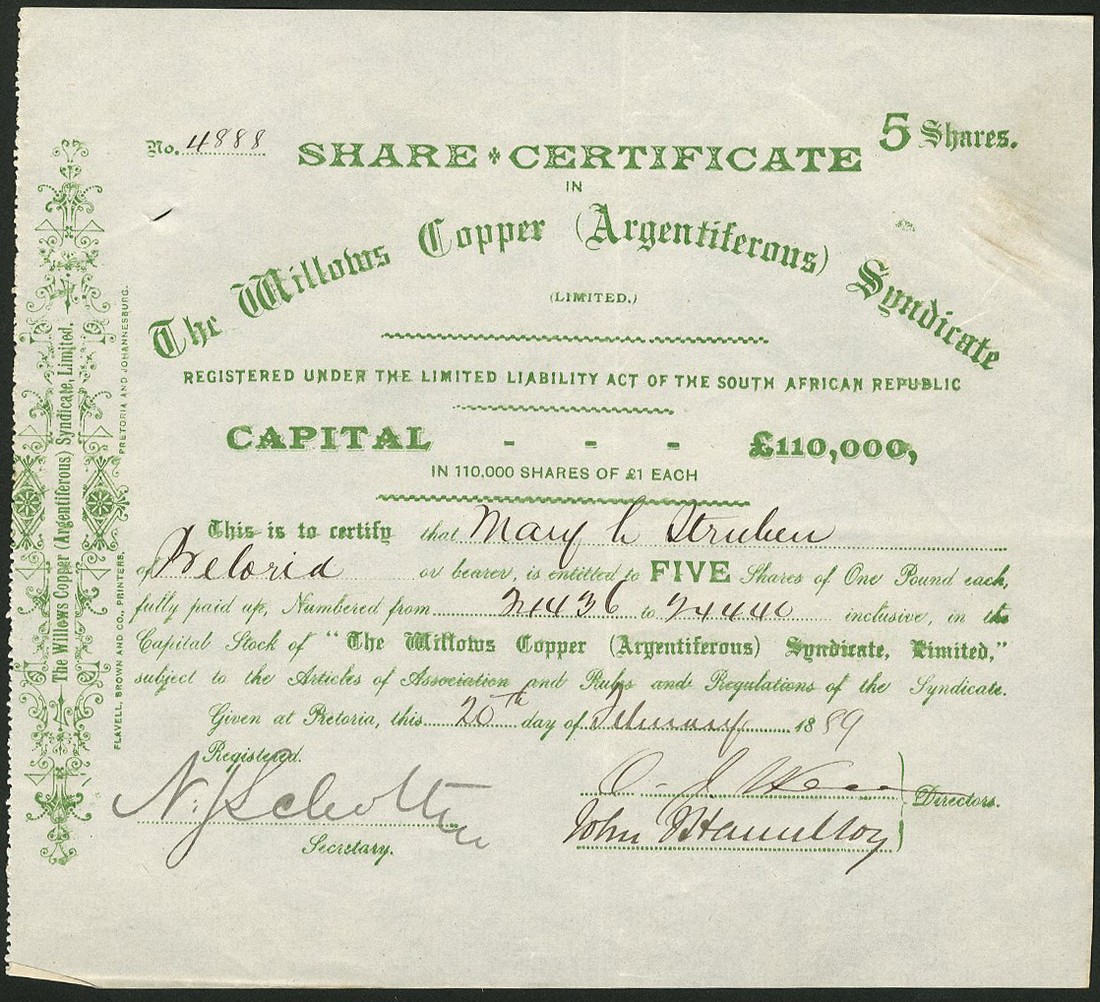 No. 4888
5 Shares.
SHARE CERTIFICATE
IN
The Willows Copper (Argentiferous) Syndicate
(LIMITED.)
REGISTERED UNDER THE LIMITED LIABILITY ACT OF THE SOUTH AFRICAN REPUBLIC
CAPITAL - - - £110,000,
IN 110,000 SHARES OF £1 EACH
This is to certify that Mary Struben
of Pretoria or bearer, is entitled to FIVE Shares of One Pound each,
fully paid up, Numbered from 24436 to 24440 inclusive, in the
Capital Stock of "The Willows Copper (Argentiferous) Syndicate, Limited,"
subject to the Articles of Association and Rules and Regulations of the Syndicate.
Given at Pretoria, this 20th day of February 1889
Registered.
N. J. Scholten
Secretary.
Directors.
John Hamilton
The Willows Copper (Argentiferous) Syndicate, Limited.
FLAVELL, BROWN AND CO., PRINTERS, PRETORIA AND JOHANNESBURG.